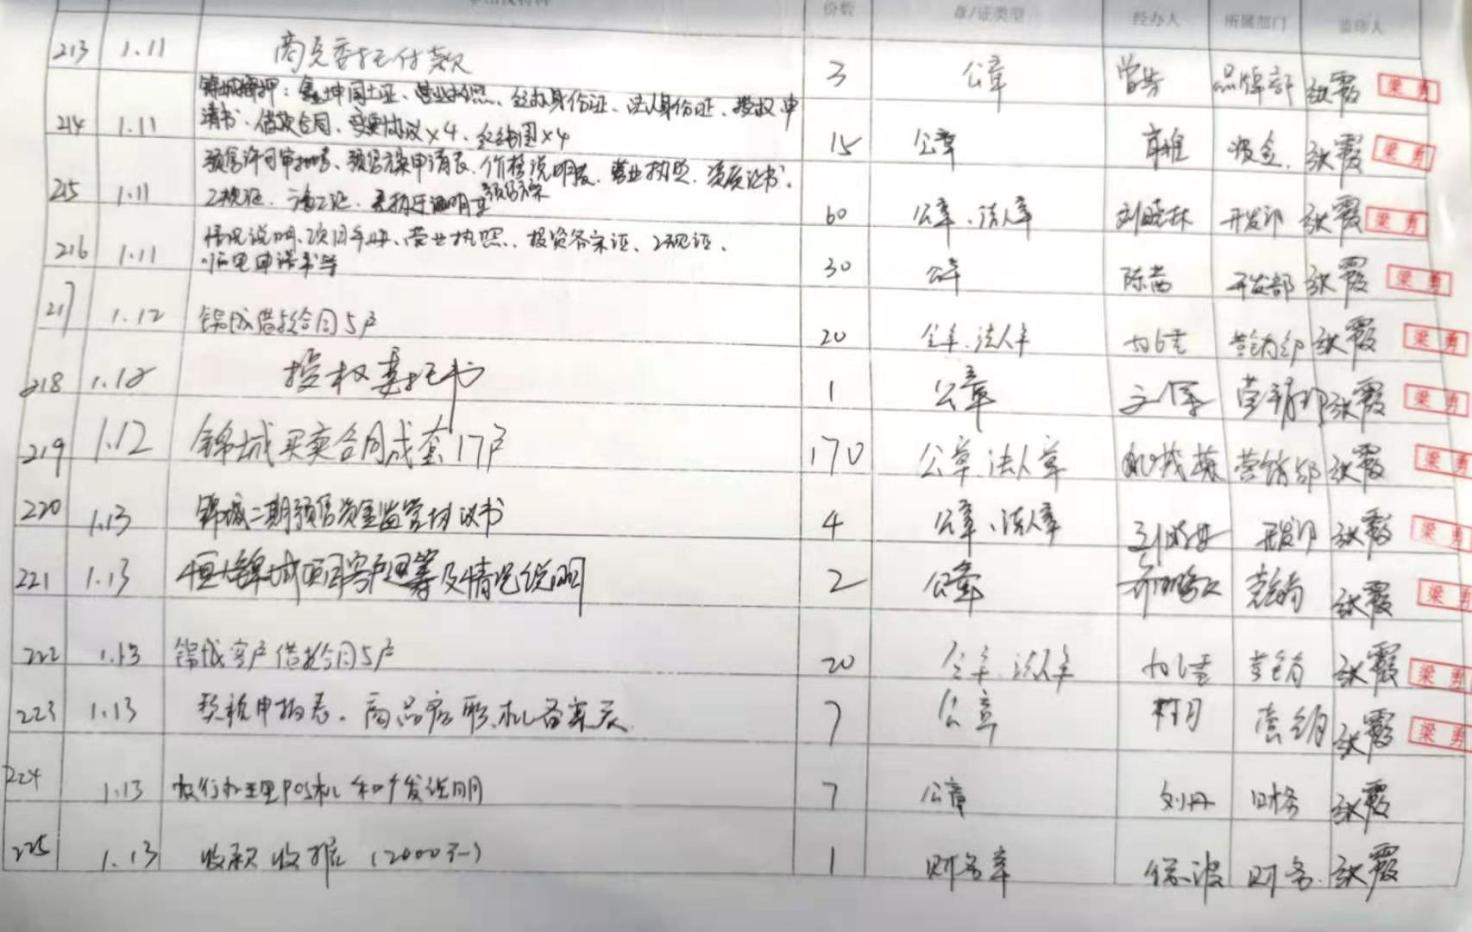 份数 章/证类型 经办人 所属部门 盖印人
213 1.11 商票委托付款 3 公章 品牌部 张霞 梁勇
锦城抵押：鑫坤国土证、营业执照、经办身份证、法人身份证、授权申
214 1.11 请书、借款合同、变更协议×4、红线图×4 15 公章 张霞 梁勇
预售许可审批表、预售方案申请表、价格说明表、营业执照、资质证书、
215 1.11 工规证、施工证、预售方案 60 公章、法人章 刘晓林 开发部 张霞 梁勇
216 1.11 情况说明、项目手册、营业执照、投资备案证、工规证、 30 公章 陈茜 开发部 张霞 梁勇
临电申请书等
217 1.12 锦城借款合同5户 20 公章、法人章 营销部 张霞 梁勇
218 1.12 授权委托书 1 公章 营销部 张霞 梁勇
219 1.12 锦城买卖合同成套17户 170 公章、法人章 营销部 张霞 梁勇
220 1.13 锦城二期预售资金监管协议书 4 公章、法人章 开发部 张霞 梁勇
221 1.13 恒大锦城项目客户及情况说明 2 公章 营销 张霞 梁勇
222 1.13 锦城客户借款合同5户 20 公章、法人章 营销 张霞 梁勇
223 1.13 契税申报表、商品房 备案表 7 公章 营销 张霞 梁勇
224 1.13 办理POS机 说明 7 公章 刘丹 财务 张霞
225 1.13 收款收据（2000元） 1 财务章 徐波 财务 张霞